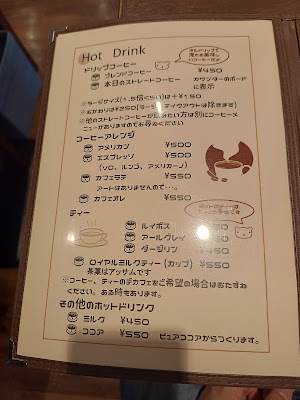 Hot Drink
ドリップコーヒー
ブレンドコーヒー ¥450
本日のストレートコーヒー カウンターのボード
に表示
※ラージサイズ(1.5倍くらい)は+¥150
※おかわりは¥250(ラージ、テイクアウトは除きます)
※他のストレートコーヒーが飲みたい方は別にコーヒーメ
ニューがありますのでお尋ねください
コーヒーアレンジ
アメリカン ¥500
エスプレッソ ¥500
(V.O、ルンゴ、アメリカーノ)
カフェラテ ¥550
アートはありませんので…。
カフェオレ ¥550
ティー
ルイボス ¥450
アールグレイ ¥450
ダージリン ¥450
ロイヤルミルクティー(カップ) ¥550
茶葉はアッサムです
※コーヒー、ティーのデカフェをご希望の場合はおたずね
ください。ある時もあります。
その他のホットドリンク
ミルク ¥450
ココア ¥550 ピュアココアからつくります。